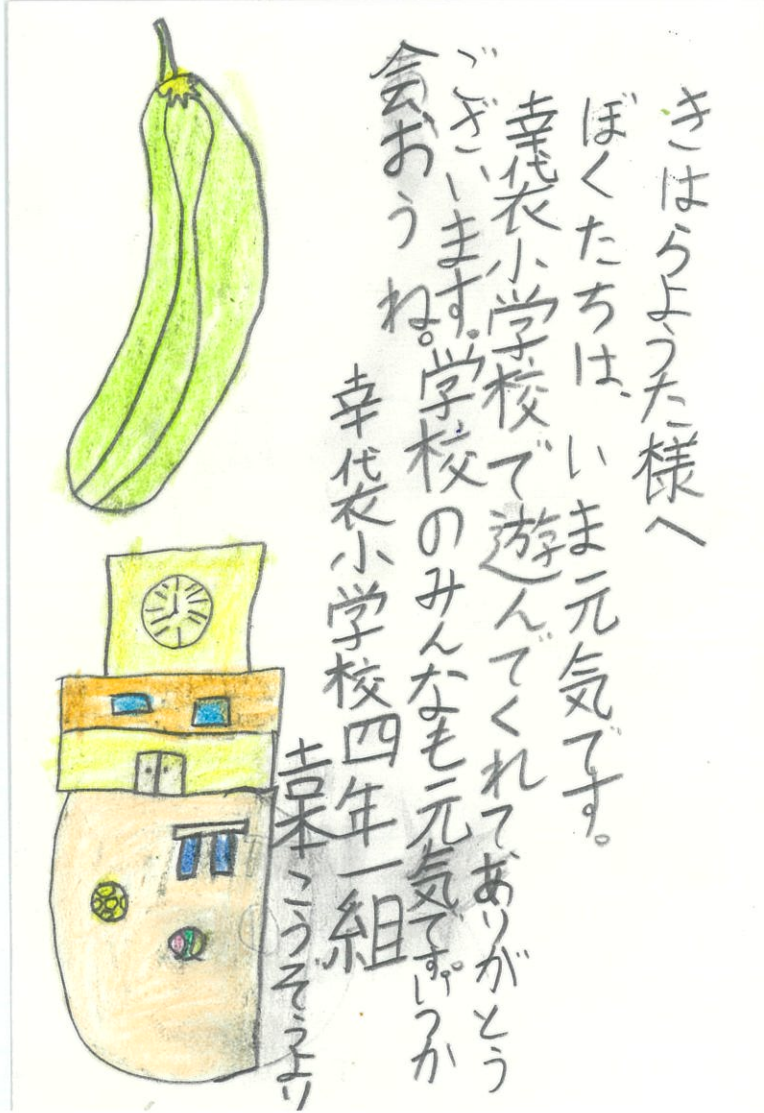 きはらようた様へ
ぼくたちは、いま元気です。
幸袋小学校で遊んでくれてありがとう
ございます。学校のみんなも元気です。いつか
会おうね。
幸袋小学校四年一組
こうぞうより